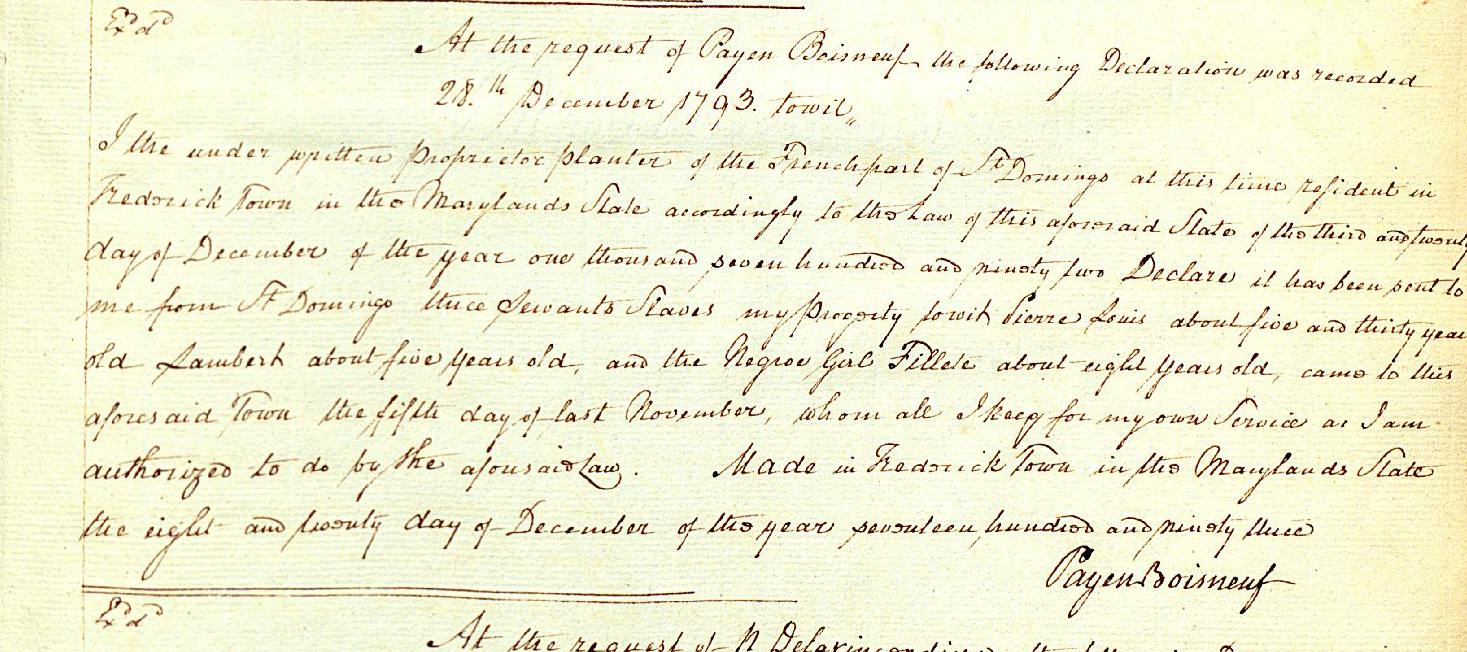 Exd
At the request of Payen Boisneuf the following Declaration was recorded
28.th December 1793. towit,,
I the under written Proprietor planter of the French part of St Domingo at this time resident in
Frederick Town in the Marylands State accordingly to the Law of this aforesaid State of the third and twenty
day of December of the year one thousand seven hundred and ninety two Declare it has been sent to
me from St Domingo three Servants Slaves my Property towit Pierre Louis about five and thirty year
old Lambert about five Years old, and the Negroe Girl Fillete about eight Years old, came to this
aforesaid Town the fifth day of last November, whom all I keep for my own Service as I am
authorized to do by the aforesaid Law. Made in Frederick Town in the Marylands State
the eight and twenty day of December of the year seventeen hundred and ninety three
Payen Boisneuf
Exd
At the request of